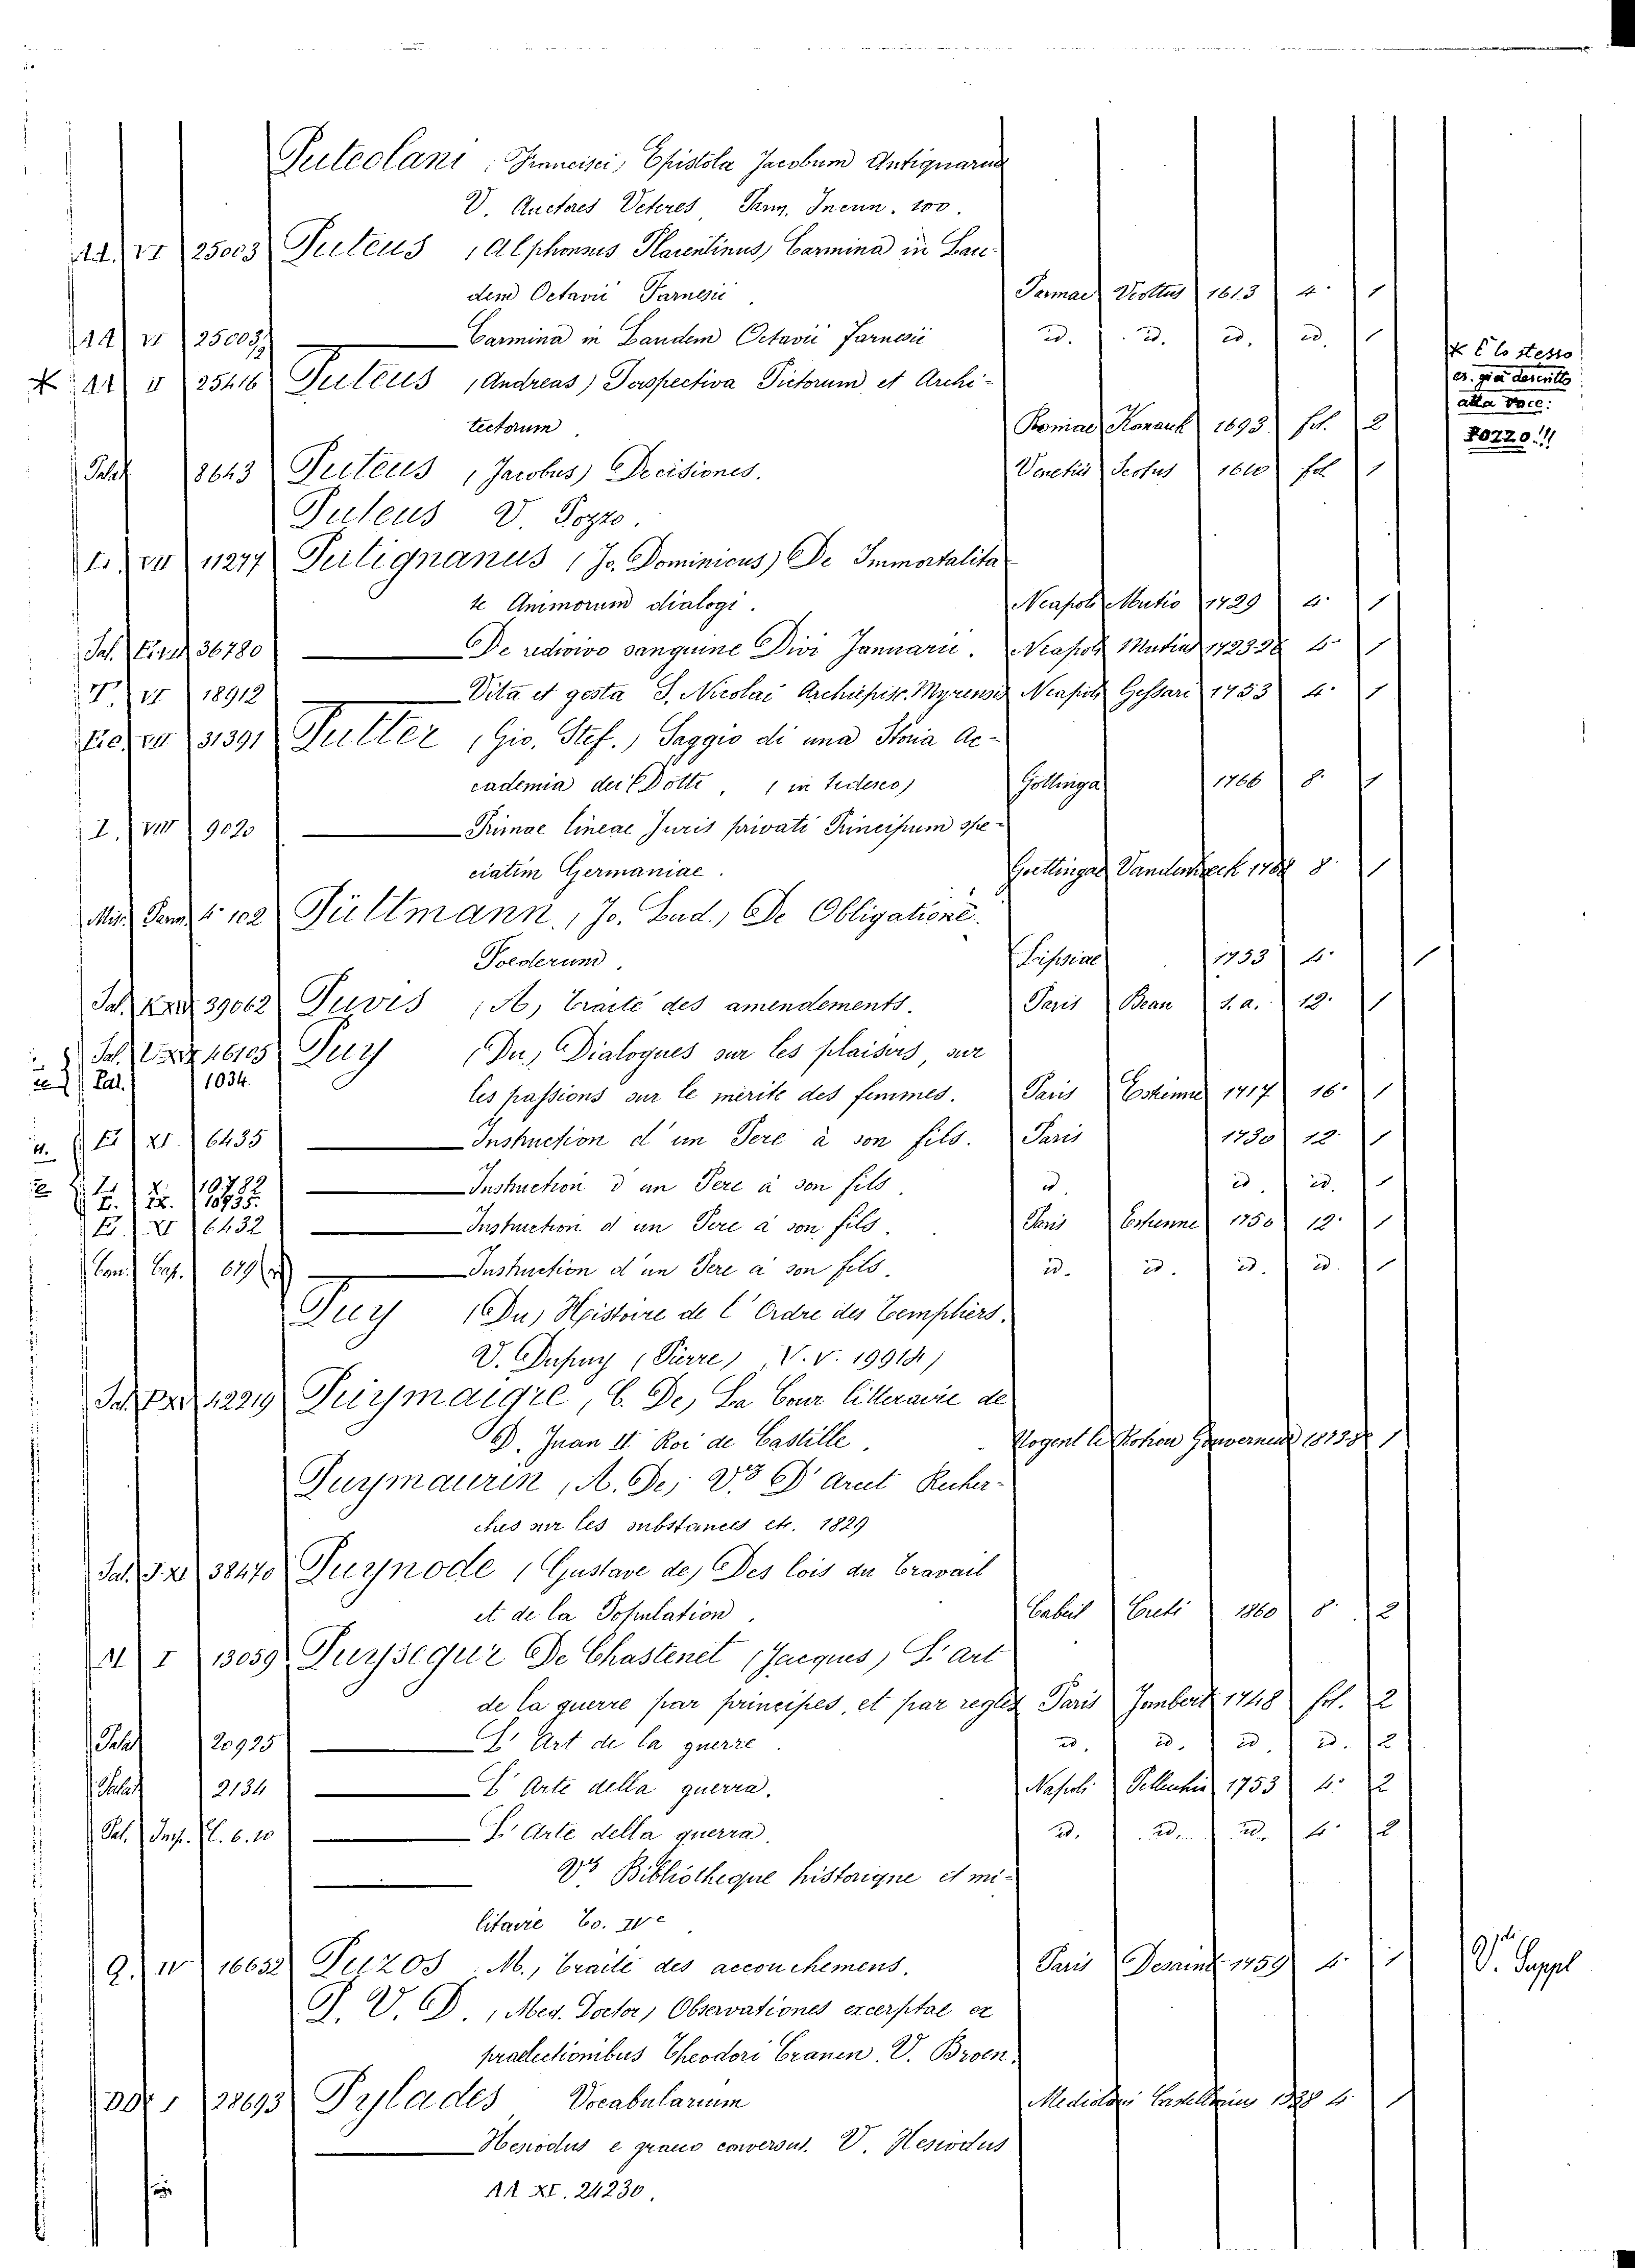 Puteolani (Francisci) Epistola Jacobum Antiquarum
V. Auctores Veteres Parm. Incun. 100.
AA. VI 25003 Puteus (Alphonsus Placentinus) Carmina in Lau-
dem Octavii Farnesii Parmae Viottus 1613 4° 1
AA VI 25003 Carmina in Laudem Octavii Farnesii id. id. id. id. 1
* AA V 25416 Puteus (Andreas) Perspectiva Pictorum et Archi-
tectorum Romae Komarek 1693 fol. 2
* È lo stesso
es. già descritto
alla voce:
POZZO!!
Palat 8643 Puteus (Jacobus) Decisiones. Venetiis Scotus 1610 fol 1
Puteus V. Pozzo.
E. VII 11277 Putignanus (Jo. Dominicus) De Immortalita-
te Animorum dialogi. Neapoli Mutio 1729 4° 1
Sal. 36780 De redivivo sanguine Divi Januarii. Neapoli Mutius 1723-26 4° 1
T. VI 18912 Vita et gesta S. Nicolai Archiepisc. Myrensis Neapoli Gessari 1753 4° 1
31391 Putter (Gio. Stef.) Saggio di una Storia Ac-
cademia dei Dotti (in tedesco) Gottinga 1766 8° 1
I. VIII 9020 Primae lineae Juris privati Principum spe-
ciatim Germaniae. Goettingae Vandenhoeck 1768 8° 1
Misc. Parm. 4° 102 Püttmann (Jo. Lud.) De Obligatione
Foederum. Lipsiae 1753 4° 1
Sal. 39062 Puvis (A.) Traité des amendements. Paris Beau s. a. 12° 1
Sal. 46105 Puy (Du) Dialogues sur les plaisirs, sur
Pal. 1034. les passions sur le mérite des femmes. Paris Estienne 1717 16° 1
E XI. 6435 Instruction d'un Pere à son fils. Paris 1730 12° 1
E. X. 10782 Instruction d'un Pere à son fils. id. id. id. 1
E. IX. 10735.
E. XI 6432 Instruction d'un Pere à son fils. Paris Estienne 1750 12° 1
Con. Cap. 679 Instruction d'un Pere à son fils. id. id. id. id. 1
Puy (Du) Histoire de l'Ordre des Templiers.
V. Dupuy (Pierre) (V. V. 19914)
Sal. 42219 Puymaigre (C. De) La Cour litteraire de
D. Juan II. Roi de Castille. Nogent le Rotrou Gouverneur 1873 8° 1
Puymaurin (A. De) V. D'Arcet Recher-
ches sur les substances etc. 1829
Sal. 38470 Puynode (Gustave de) Des lois du Travail
et de la Population. Corbeil Creté 1860 8° 2
M I 13059 Puysegur De Chastenet (Jacques) L'art
de la guerre par principes, et par regles Paris Jombert 1748 fol. 2
Palat 20925 L'Art de la guerre. id. id. id. id. 2
Palat 2134 L'Arte della guerra. Napoli Pellechia 1753 4° 2
Pal. Imp. C. 6. 10 L'Arte della guerra. id. id. id. 4° 2
V. Bibliotheque historique et mi-
litaire To. IVe
Q. IV 16652 Puzos (M.) Traité des accouchemens. Paris Desaint 1759 4° 1
V. Suppl
P. V. D. (Med. Doctor) Observationes excerptae ex
praelectionibus Theodori Cranen. V. Broen.
DD. I 28693 Pylades Vocabularium Mediolani Castellioneus 1528 4° 1
Hesiodus e graeco conversus. V. Hesiodus
AA XI. 24230.